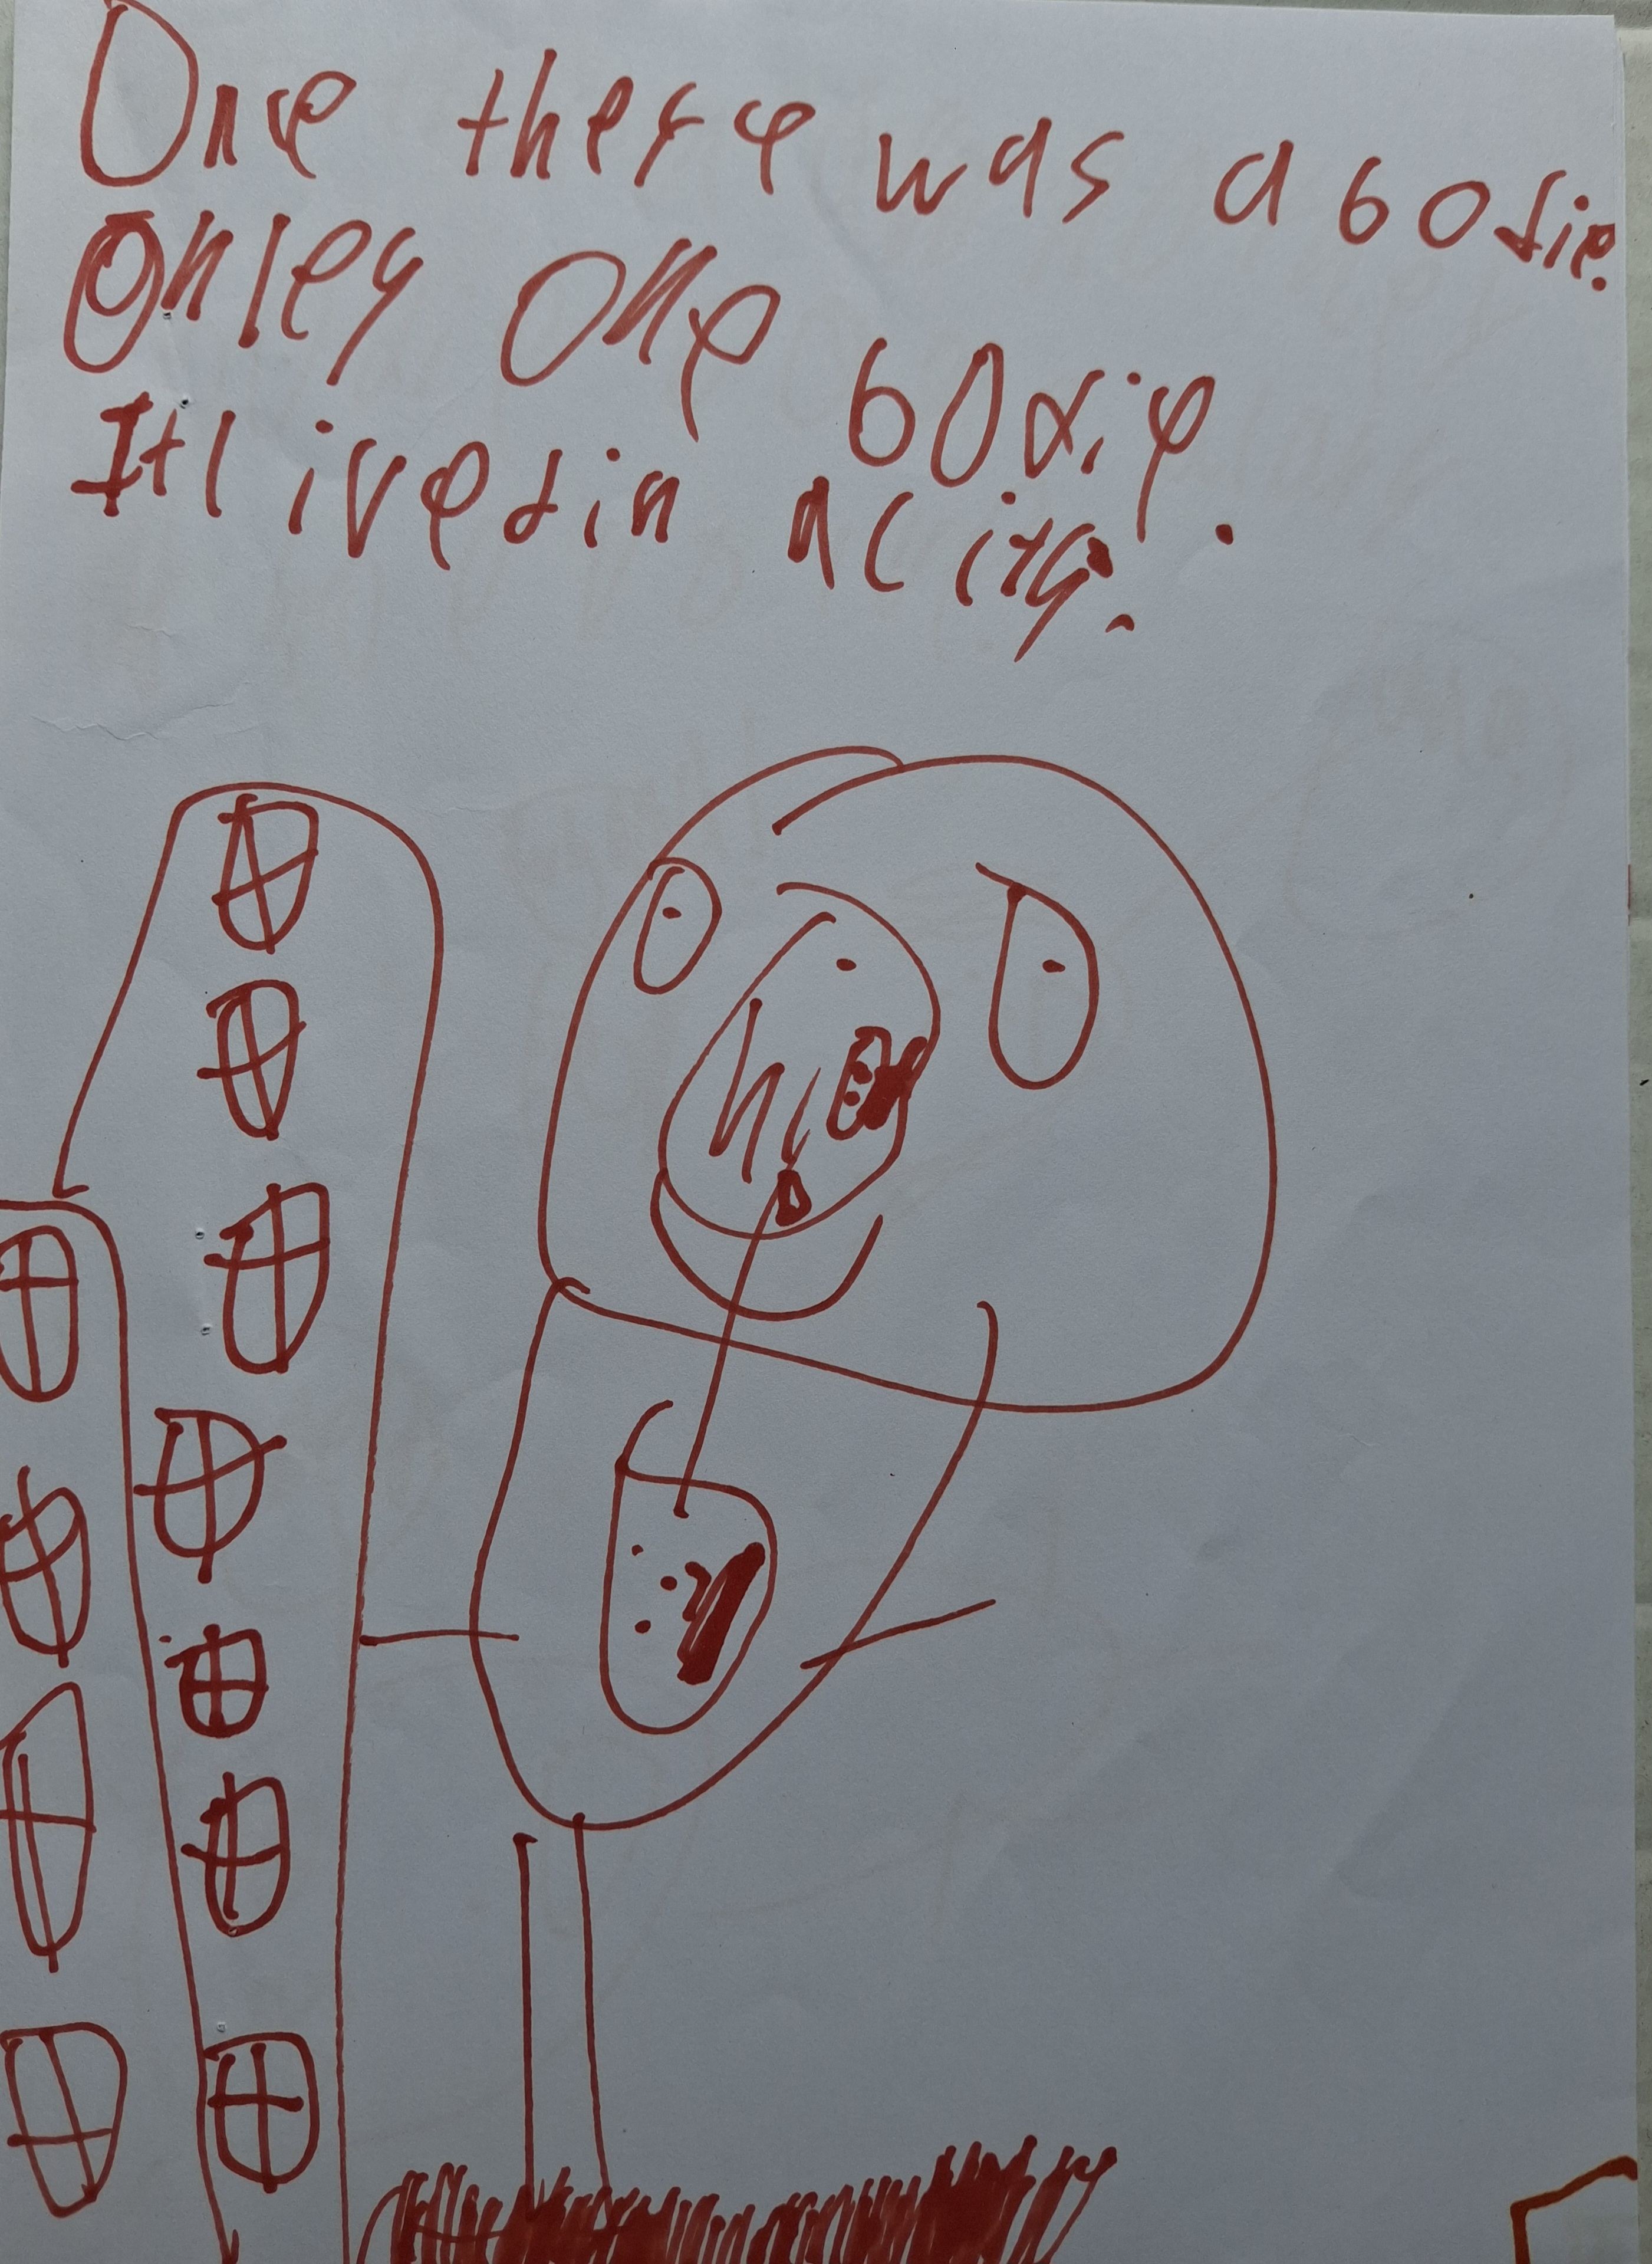 Once there was a bodie.
Onley one bodie.
It lived in a city.
hi